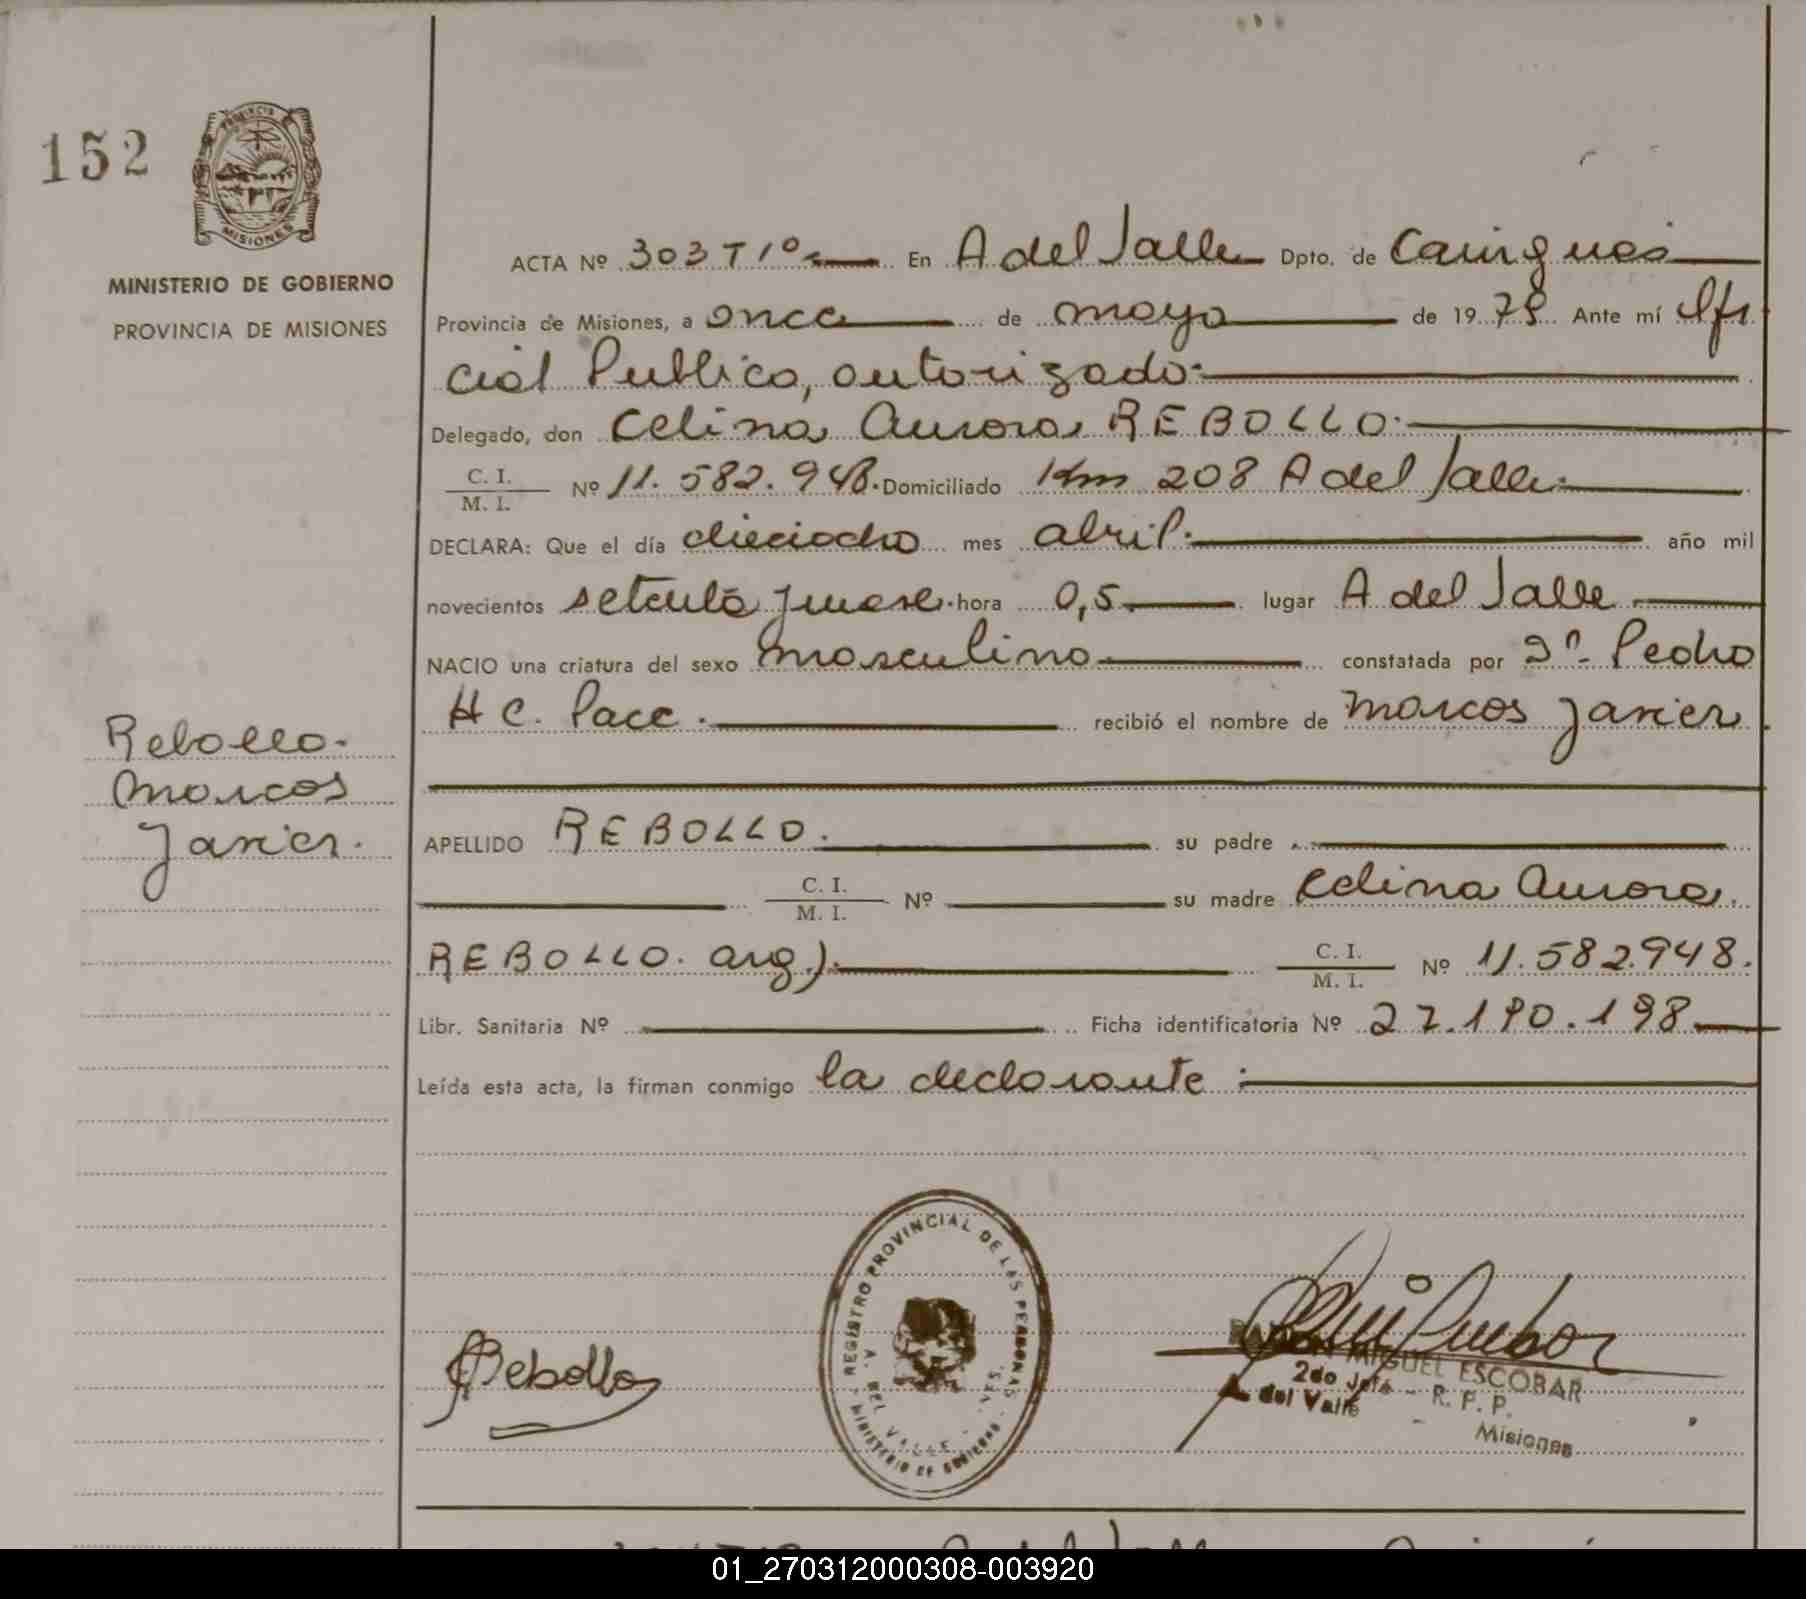 152
PROVINCIA
MISIONES
MINISTERIO DE GOBIERNO
PROVINCIA DE MISIONES
ACTA Nº 303 T 1º En A del Valle Dpto. de Cainguás
Provincia de Misiones, a once de mayo de 1979 Ante mí Ofi
cial Publico, autorizado
Delegado, don Celina Aurora REBOLLO.
C. I.
M. I. Nº 11.582.948. Domiciliado Km 208 A del Valle
DECLARA: Que el día dieciocho mes abril. año mil
novecientos setenta y nueve. hora 0,5 lugar A del Valle
NACIO una criatura del sexo masculino constatada por Pedro
H C. Pace. recibió el nombre de Marcos Javier
Rebollo.
Marcos
Javier.
APELLIDO REBOLLO. su padre
C. I.
M. I. Nº su madre Celina Aurora
REBOLLO. arg.) C. I.
M. I. Nº 11.582.948.
Libr. Sanitaria Nº Ficha identificatoria Nº 27.190.198
Leída esta acta, la firman conmigo la declarante
Rebollo
REGISTRO PROVINCIAL DE LAS PERSONAS
A. DEL VALLE - MNES.
MINISTERIO DE GOBIERNO
RAMON MIGUEL ESCOBAR
2do Jefe - R. P. P.
A. del Valle - Misiones
01_270312000308-003920